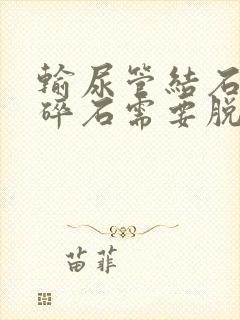 输尿管结石
碎石需要脱
苗菲